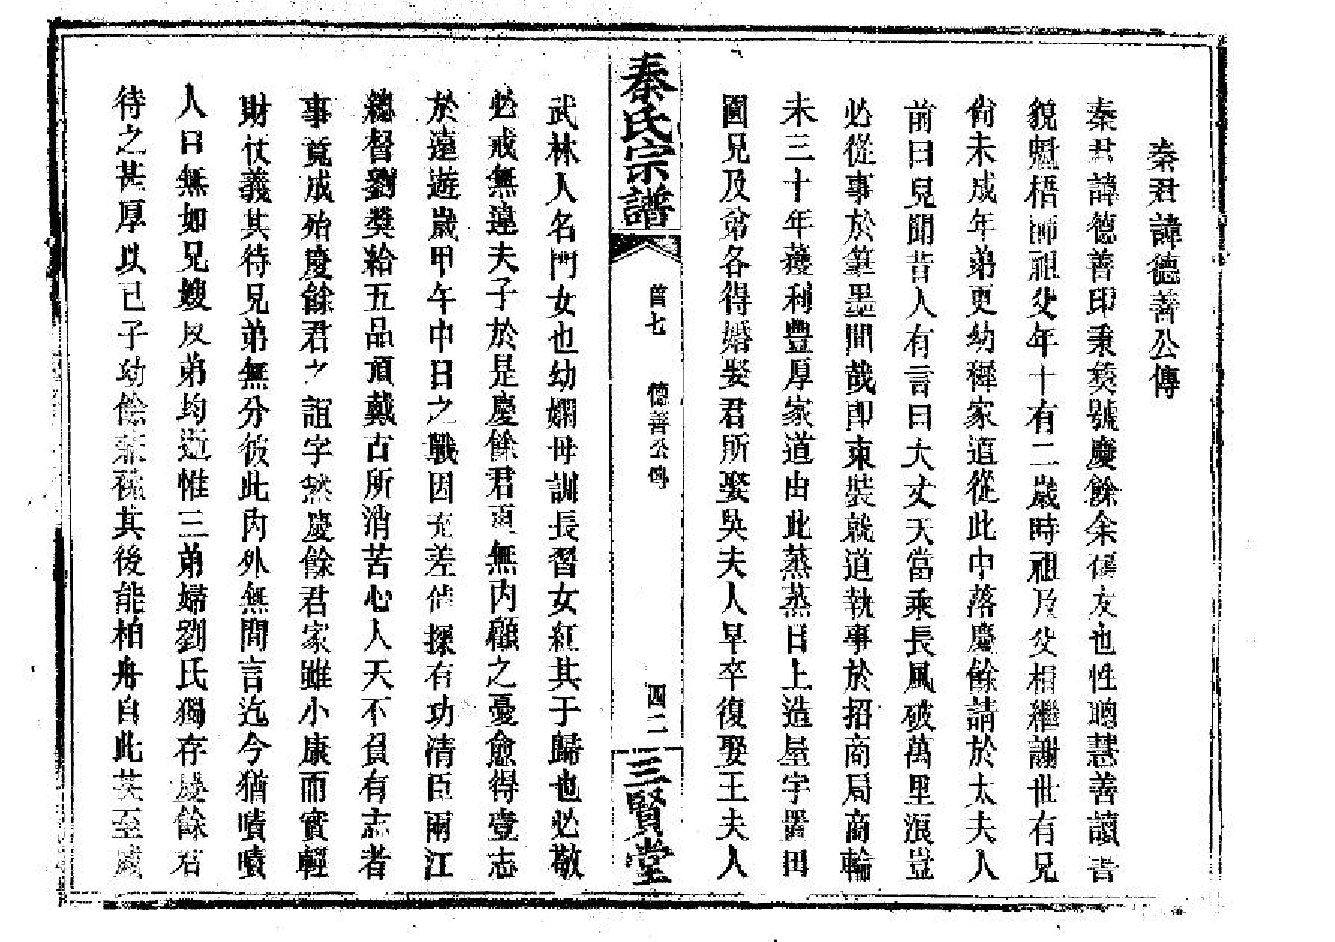 秦君諱德善公傳
秦君諱德善印秉奐號慶餘余傒友也性聰慧善讀書
貌魁梧師祖父年十有二歲時祖及父相繼謝世有兄
尙未成年弟更幼穉家道從此中落慶餘請於太夫人
前曰兒聞昔人有言曰大丈夫當乘長風破萬里浪豈
必從事於筆墨間哉即束裝就道執事於招商局商輪
未三十年獲利豐厚家道由此蒸蒸日上造屋宇置田
園兄及弟各得婚娶君所娶吳夫人早卒復娶王夫人
秦氏宗譜
首七 德善公傳
四二
三賢堂
武林人名門女也幼嫻母訓長習女紅其于歸也必敬
必戒無違夫子於是慶餘君頁無內顧之憂愈得壹志
於遠遊歲甲午中日之戰因充差偵探有功清臣兩江
總督劉獎給五品頂戴古所消苦心人天不負有志者
事竟成殆慶餘君之誼字然慶餘君家雖小康而實輕
財仗義其待兄弟無分彼此內外無間言迄今猶嘖嘖
人曰無如兄嫂及弟均逝惟三弟婦劉氏獨存慶餘君
待之甚厚以己子幼餘承祧其後能柏舟自此甚至歲